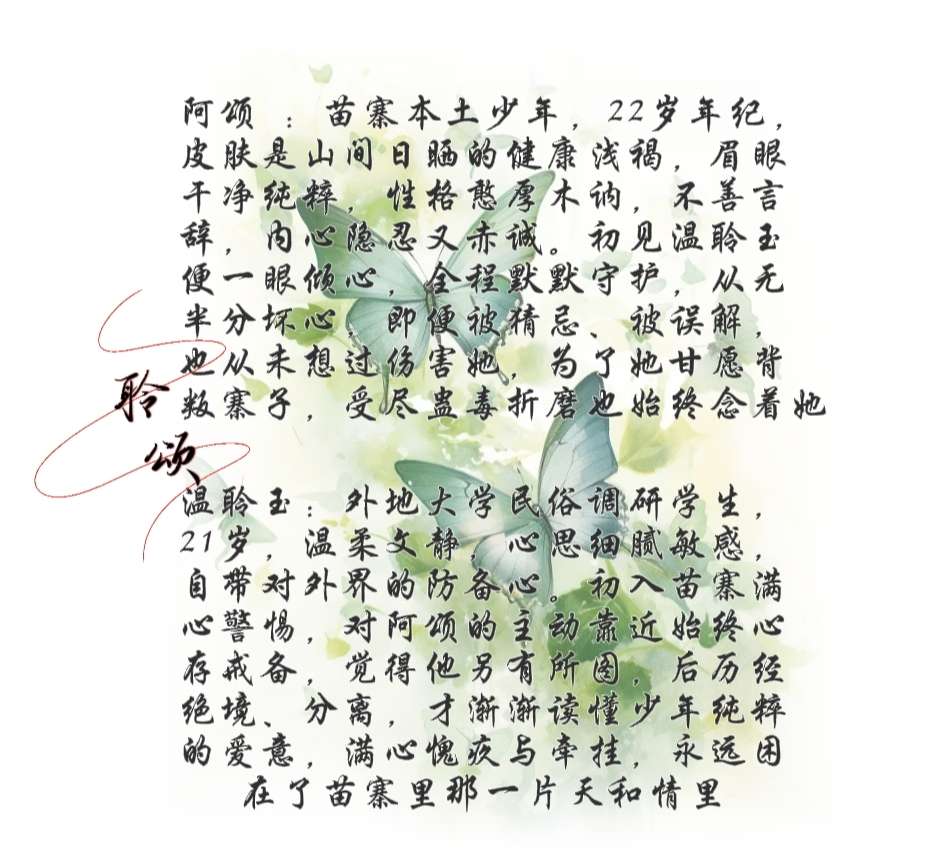 阿颂 : 苗寨本土少年, 22岁年纪,
皮肤是山间日晒的健康浅褐, 眉眼
干净纯粹, 性格憨厚木讷, 不善言
辞, 内心隐忍又赤诚。初见温聆玉
便一眼倾心, 全程默默守护, 从无
半分坏心, 即便被猜忌、被误解,
也从未想过伤害她, 为了她甘愿背
叛寨子, 受尽蛊毒折磨也始终念着她
聆
颂
温聆玉: 外地大学民俗调研学生,
21岁, 温柔文静, 心思细腻敏感,
自带对外界的防备心。初入苗寨满
心警惕, 对阿颂的主动靠近始终心
存戒备, 觉得他另有所图, 后历经
绝境、分离, 才渐渐读懂少年纯粹
的爱意, 满心愧疚与牵挂, 永远困
在了苗寨里那一片天和情里